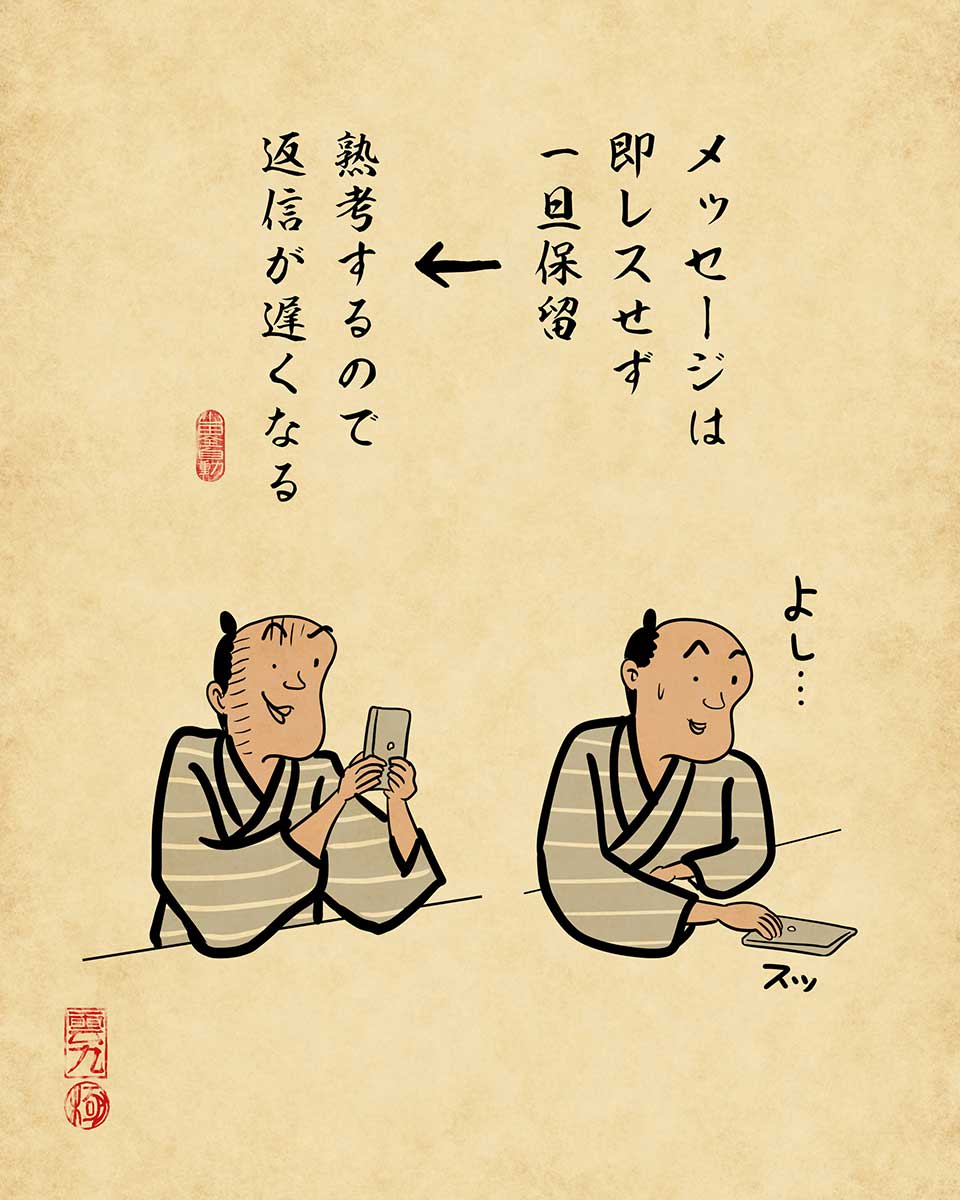 メッセージは
即レスせず
一旦保留
←
熟考するので
返信が遅くなる
よし…
スッ